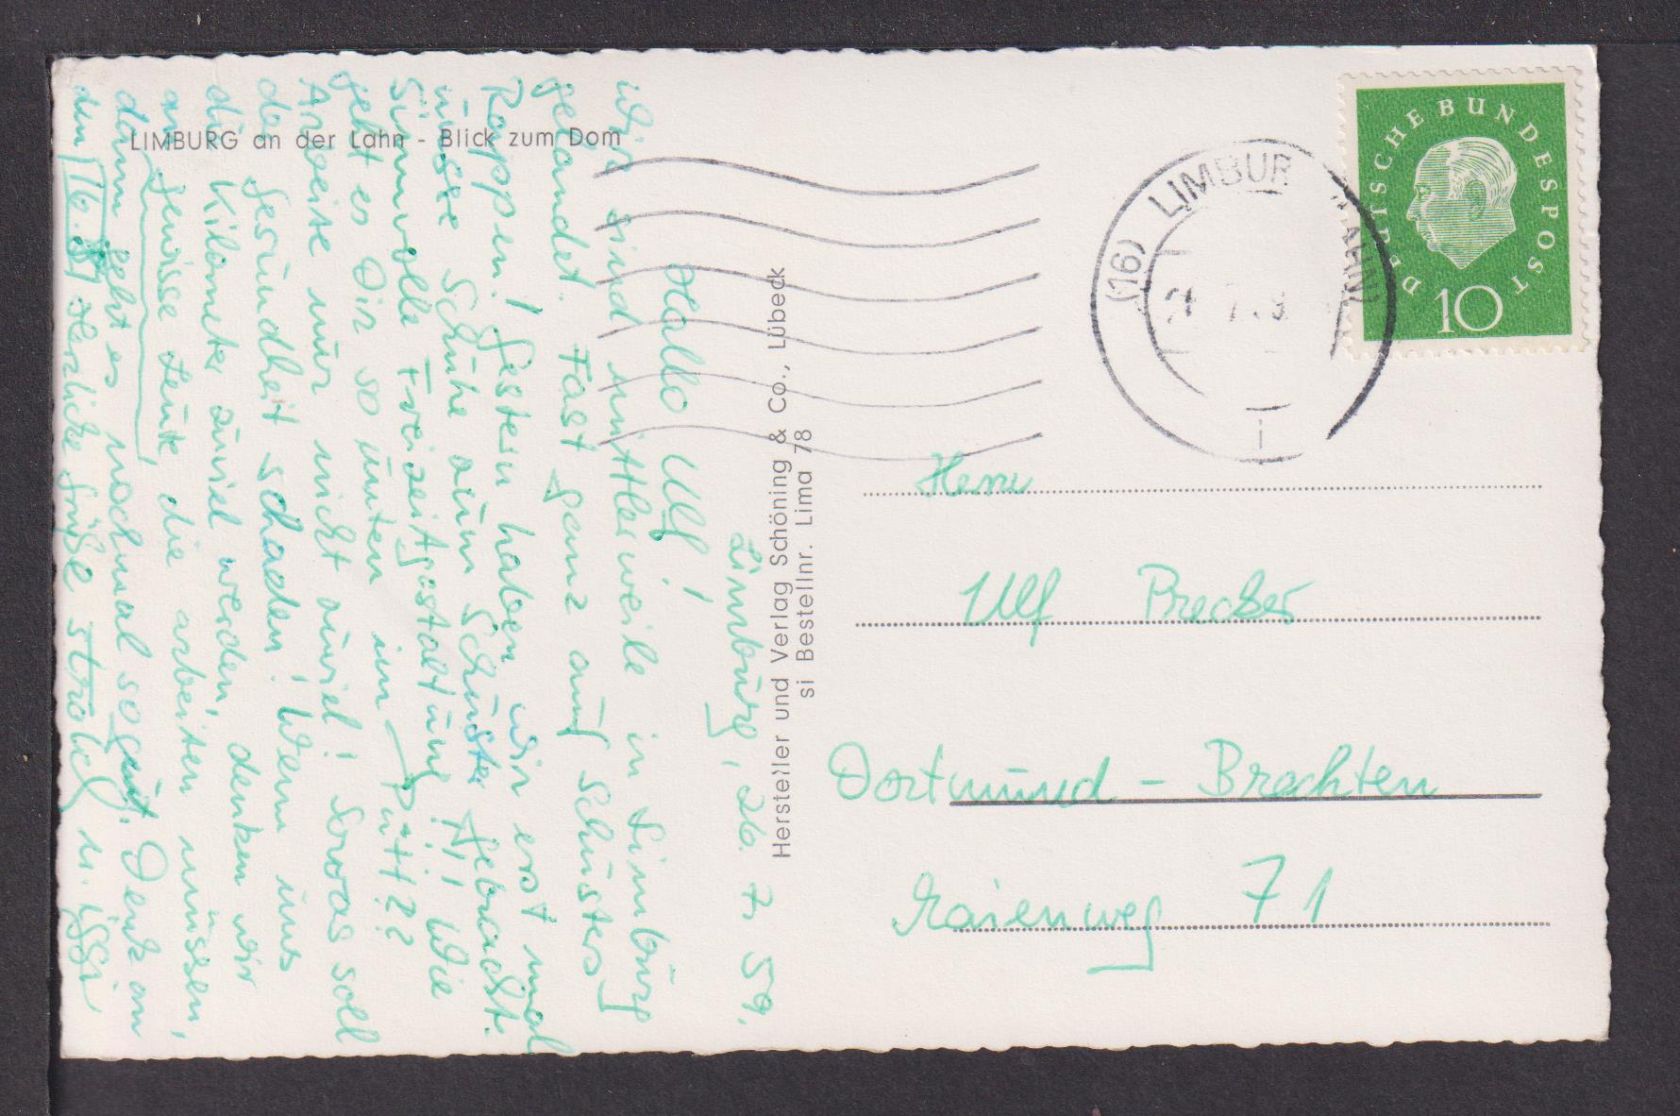 LIMBURG an der Lahn - Blick zum Dom
Limburg, 26. 7. 59.
Hallo Ulf!
Wir sind mittlerweile in Limburg
gelandet. Fast ganz auf Schusters
Rappen! Gestern haben wir erst mal
unsre Schuhe zum Schuster gebracht.
Sinnvolle Freizeitgestaltung! Wie
geht es Dir so unten im Pütt??
Arbeite nur nicht zuviel! Sowas soll
der Gesundheit schaden! Wenn uns
die Kilometer zuviel werden, denken wir
an gewisse Leute, die arbeiten müssen,
dann geht es nochmal so gut. Denk an
den 16. 8! Herzliche Grüße Strobel u.
Hersteller und Verlag Schöning & Co., Lübeck
si Bestellnr. Lima 78
DEUTSCHE BUNDESPOST
10
(16) LIMBUR
Herrn
Ulf Brecker
Dortmund - Brechten
Maienweg 71